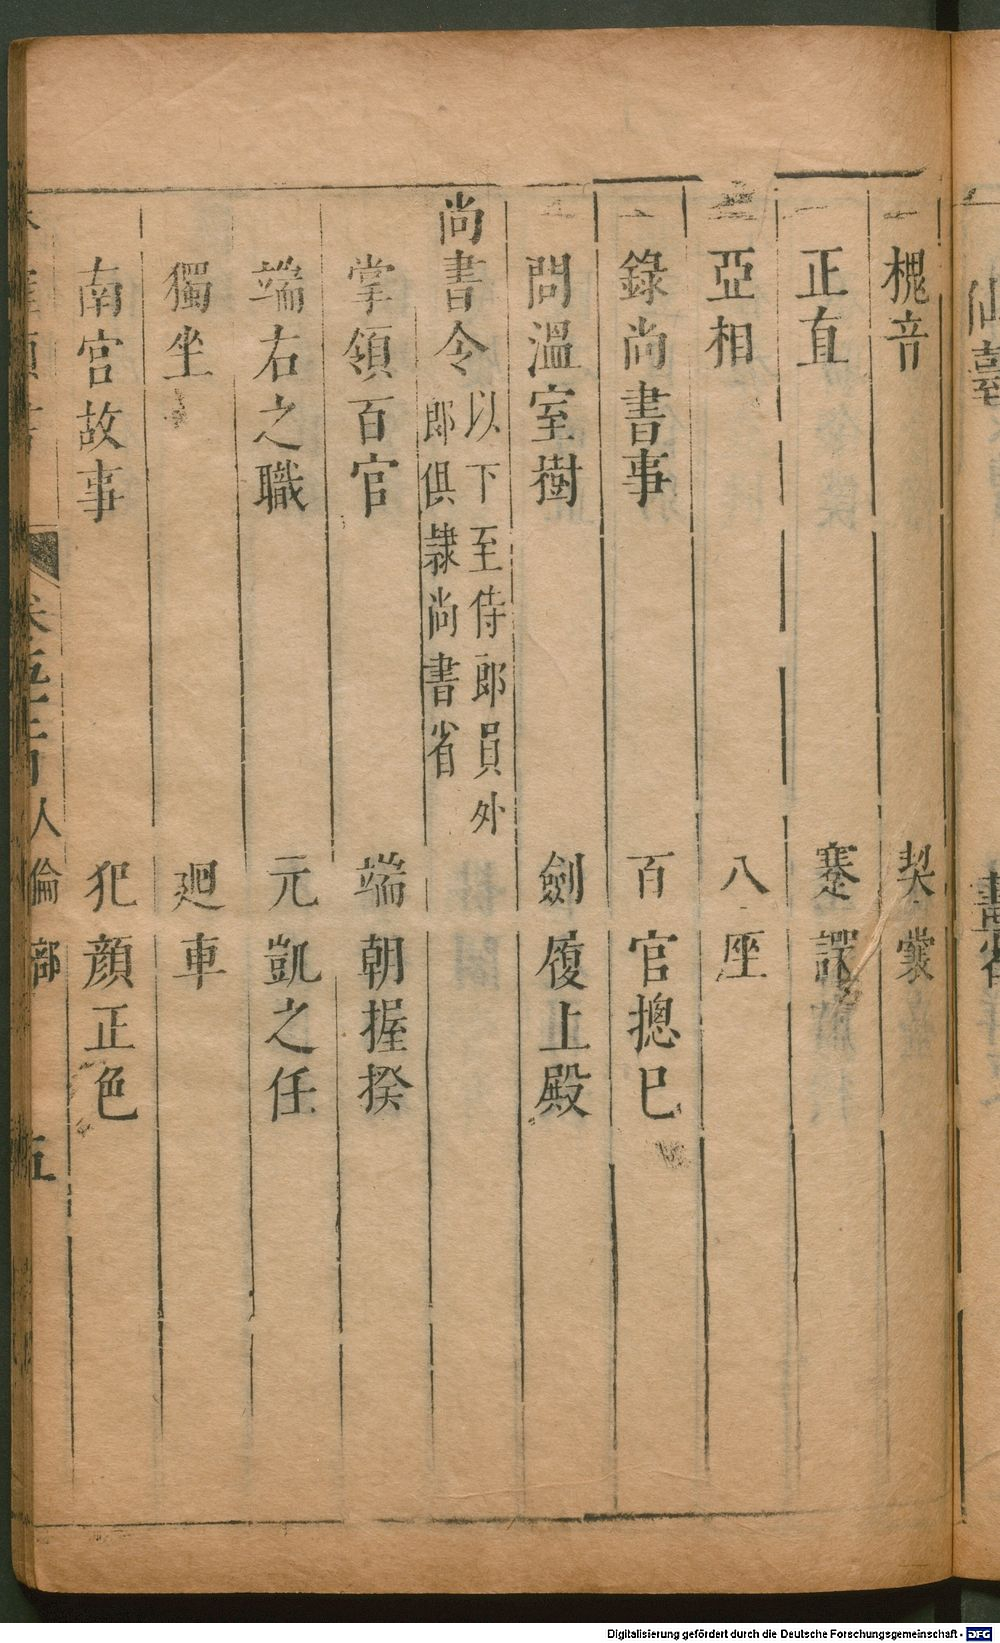 槐音 契
正直 蹇諤
亞相 八座
錄尚書事 百官摠巳
問溫室樹 劍履上殿
尚書令 以下至侍郎員外郎俱隷尚書省
掌領百官 端朝握揆
端右之職 元凱之任
獨坐 廻車
南宮故事 犯顏正色
人倫部 五
Digitalisierung gefördert durch die Deutsche Forschungsgemeinschaft - DFG